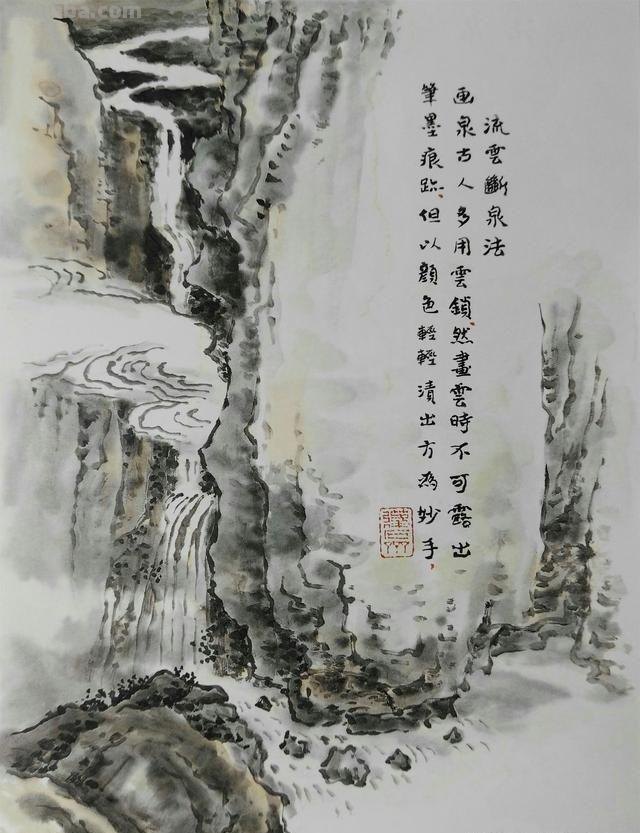 流雲斷泉法
画泉古人多用雲鎖,然畫雲時不可露出
筆墨痕跡,但以顏色輕輕漬出方為妙手,